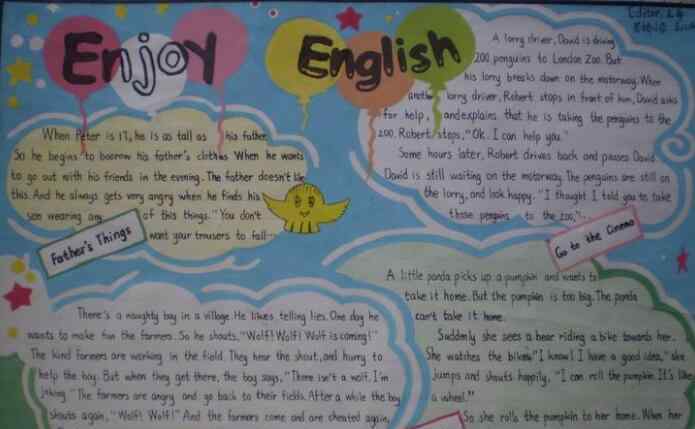 Enjoy English
Editor:
When Peter is 17, he is as tall as his father.
So he begins to boorow his father's clothes When he wants
to go out with his friends in the evening. The father doesn't like
this. And he always gets very angry when he finds his
son wearing any of this things. "You don't
want your trousers to fall
Father's Things
A lorry driver, David is driving
200 penguins to London Zoo. But
his lorry breaks down on the motorway. When
another lorry driver, Robert stops in front of him, David asks
for help, andexplains that he is taking the penguins to the
zoo. Robert stops, "Ok. I can help you."
Some hours later, Robert drives back and passes David.
David is still waiting on the motorway. The penguins are still on
the lorry, and look happy. "I thought I told you to take
those penguins to the zoo,"
Go to the Cinema
There's a naughty boy in a village. He likes telling lies. One day he
wants to make fun the farmers. So he shouts, "Wolf! Wolf! Wolf is coming!"
The kind farmers are working in the field. They hear the shout, and hurry to
help the boy. But when they get there, the boy says, "There isn't a wolf. I'm
joking." The farmers are angry and go back to their fields. After a while the boy
shouts again, "Wolf! Wolf!" And the farmers come and are cheated again,
A little panda picks up a pumpkin and wants to
take it home. But the pumpkin is too big. The panda
can't take it home.
Suddnly she sees a bear riding a bike towards her.
She watches the bike "I know! I have a good idea," she
jumps and shouts happily, "I can roll the pumpkin. It's like
a wheel."
So she rolls the pumpkin to her home. When her